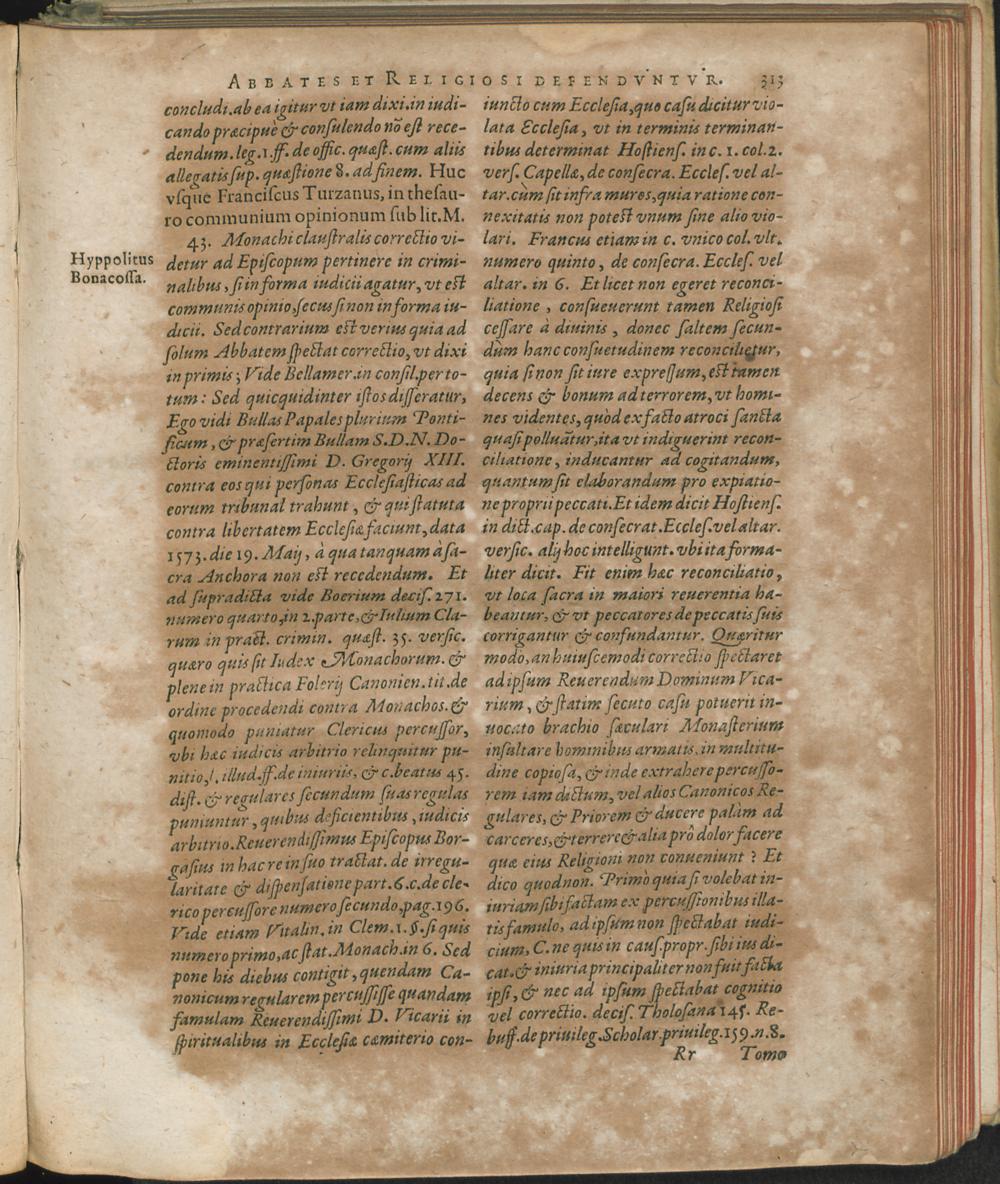 ABBATES ET RELIGIOSI DEFENDVNTVR. 313
concludi.ab ea igitur vt iam dixi.in iudi-
cando præcipuè & consulendo nõ est rece-
dendum.leg.1.ff. de offic. quæst. cum aliis
allegatis sup. quæstione 8. ad finem. Huc
vsque Franciscus Turzanus, in thesau-
ro communium opinionum sub lit.M.
43. Monachi claustralis correctio vi-
detur ad Episcopum pertinere in crimi-
nalibus, si in forma iudicii agatur, vt est
communis opinio, secus si non in forma iu-
dicii. Sed contrarium est verius quia ad
solum Abbatem spectat correctio, vt dixi
in primis; Vide Bellamer.in consil.per to-
tum: Sed quicquid inter istos disseratur,
Ego vidi Bullas Papales plurium Ponti-
ficum, & præsertim Bullam S.D.N. Do-
ctoris eminentissimi D. Gregorij XIII.
contra eos qui personas Ecclesiasticas ad
eorum tribunal trahunt, & qui statuta
contra libertatem Ecclesiæ faciunt, data
1573. die 19. Maij, à qua tanquam à sa-
cra Anchora non est recedendum. Et
ad supradicta vide Boerium decis. 271.
numero quarto, in 2.parte, & Iulium Cla-
rum in pract. crimin. quæst. 35. versic.
quæro quis sit Iudex Monachorum. &
plene in practica Folerij Canonien.tit.de
ordine procedendi contra Monachos. &
quomodo puniatur Clericus percussor,
vbi hæc iudicis arbitrio relinquitur pu-
nitio, l. illud.ff.de iniuriis, & c.beatus 45.
dist. & regulares secundum suas regulas
puniuntur, quibus deficientibus, iudicis
arbitrio. Reuerendissimus Episcopus Bor-
gasius in hac re in suo tractat. de irregu-
laritate & dispensatione part.6.c.de cle-
rico percussore numero secundo, pag.196.
Vide etiam Vitalin. in Clem.1.§.si quis
numero primo, ac stat. Monach.in 6. Sed
pone his diebus contigit, quendam Ca-
nonicum regularem percussisse quandam
famulam Reuerendissimi D. Vicarii in
spiritualibus in Ecclesiæ cæmiterio con-
Hyppolitus
Bonacossa.
iuncto cum Ecclesia, quo casu dicitur vio-
lata Ecclesia, vt in terminis terminan-
tibus determinat Hostiens. in c. 1. col.2.
vers. Capellæ, de consecra. Eccles. vel al-
tar.cùm sit infra muros, quia ratione con-
nexitatis non potest vnum sine alio vio-
lari. Francus etiam in c. vnico col. vlt.
numero quinto, de consecra. Eccles. vel
altar. in 6. Et licet non egeret reconci-
liatione, consueuerunt tamen Religiosi
cessare à diuinis, donec saltem secun-
dùm hanc consuetudinem reconcilietur,
quia si non sit iure expressum, est tamen
decens & bonum ad terrorem, vt homi-
nes videntes, quòd ex facto atroci sancta
quasi polluãtur, ita vt indiguerint recon-
ciliatione, inducantur ad cogitandum,
quantum sit elaborandum pro expiatio-
ne proprii peccati. Et idem dicit Hostiens.
in dict.cap. de consecrat. Eccles.vel altar.
versic. alij hoc intelligunt. vbi ita forma-
liter dicit. Fit enim hæc reconciliatio,
vt loca sacra in maiori reuerentia ha-
beantur, & vt peccatores de peccatis suis
corrigantur & confundantur. Quæritur
modo, an huiuscemodi correctio spectaret
ad ipsum Reuerendum Dominum Vica-
rium, & statim secuto casu potuerit in-
uocato brachio sæculari Monasterium
insaltare hominibus armatis, in multitu-
dine copiosa, & inde extrahere percusso-
rem iam dictum, vel alios Canonicos Re-
gulares, & Priorem & ducere palàm ad
carceres, & terrere & alia prò dolor facere
quæ eius Religioni non conueniunt? Et
dico quod non. Primò quia si volebat in-
iuriam sibi factam ex percussionibus illa-
tis famulo, ad ipsum non spectabat iudi-
cium, C. ne quis in caus.propr.sibi ius di-
cat. & iniuria principaliter non fuit facta
ipsi, & nec ad ipsum spectabat cognitio
vel correctio. decis. Tholosana 145. Re-
buff.de priuileg. Scholar.priuileg.159.n.8.
Rr Tomo